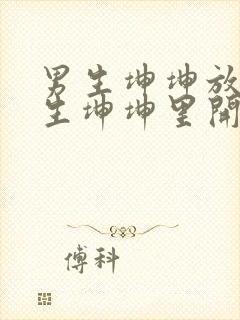 男生坤坤放
生坤坤里開
傅科